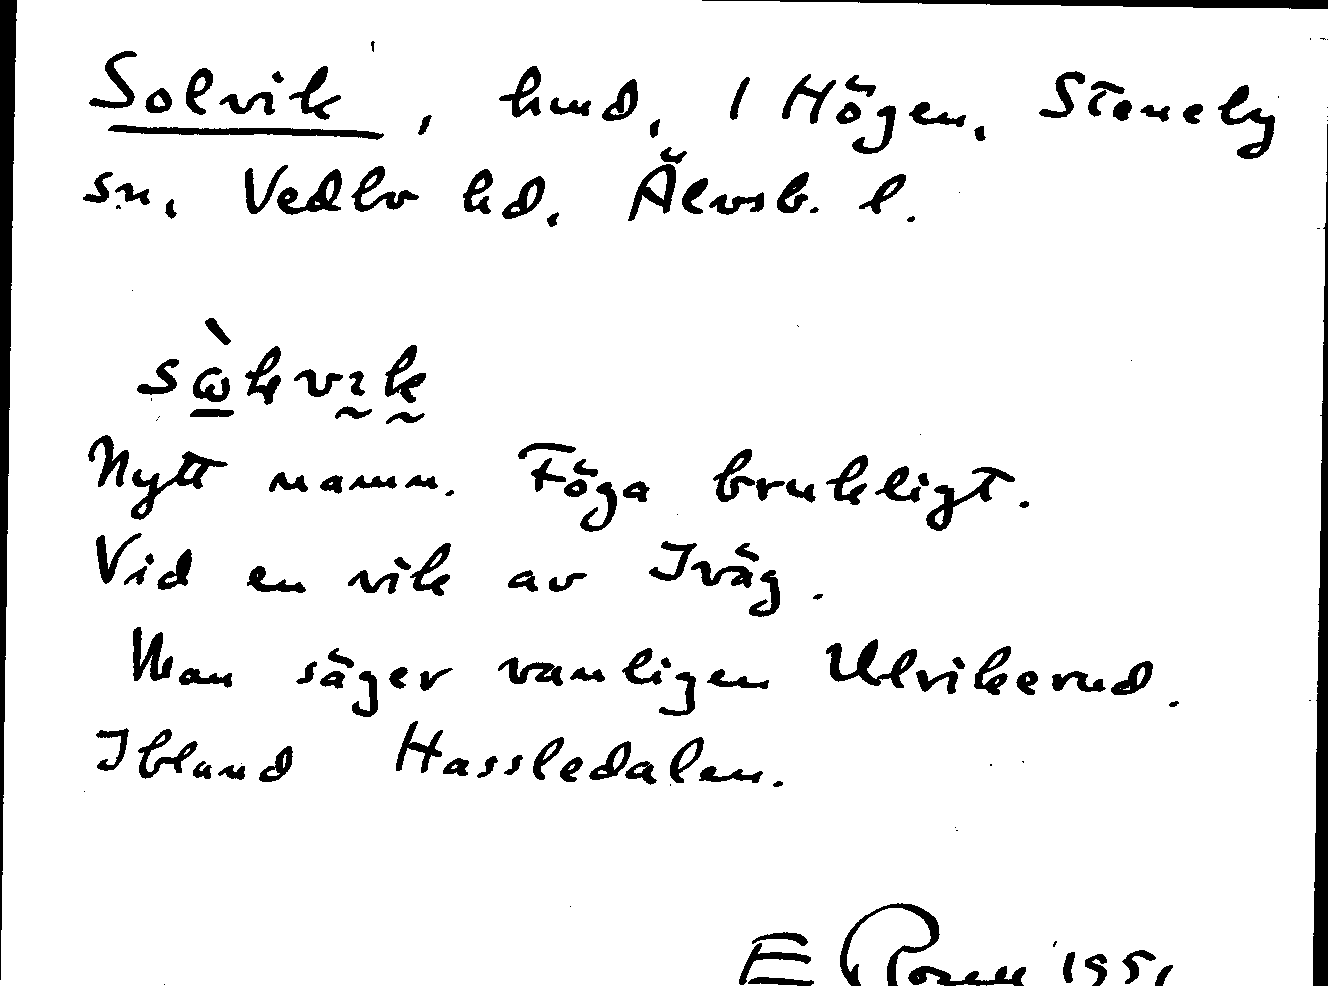 Solvik, hmd, 1 Högen, Steneby
sn, Vedbo hd, Älvsb. l.
Nytt namn. Föga brukligt.
Vid en vik av Iväg.
Man säger vanligen Ulrikerud.
Ibland Hassledalen.
E Rosell 1951